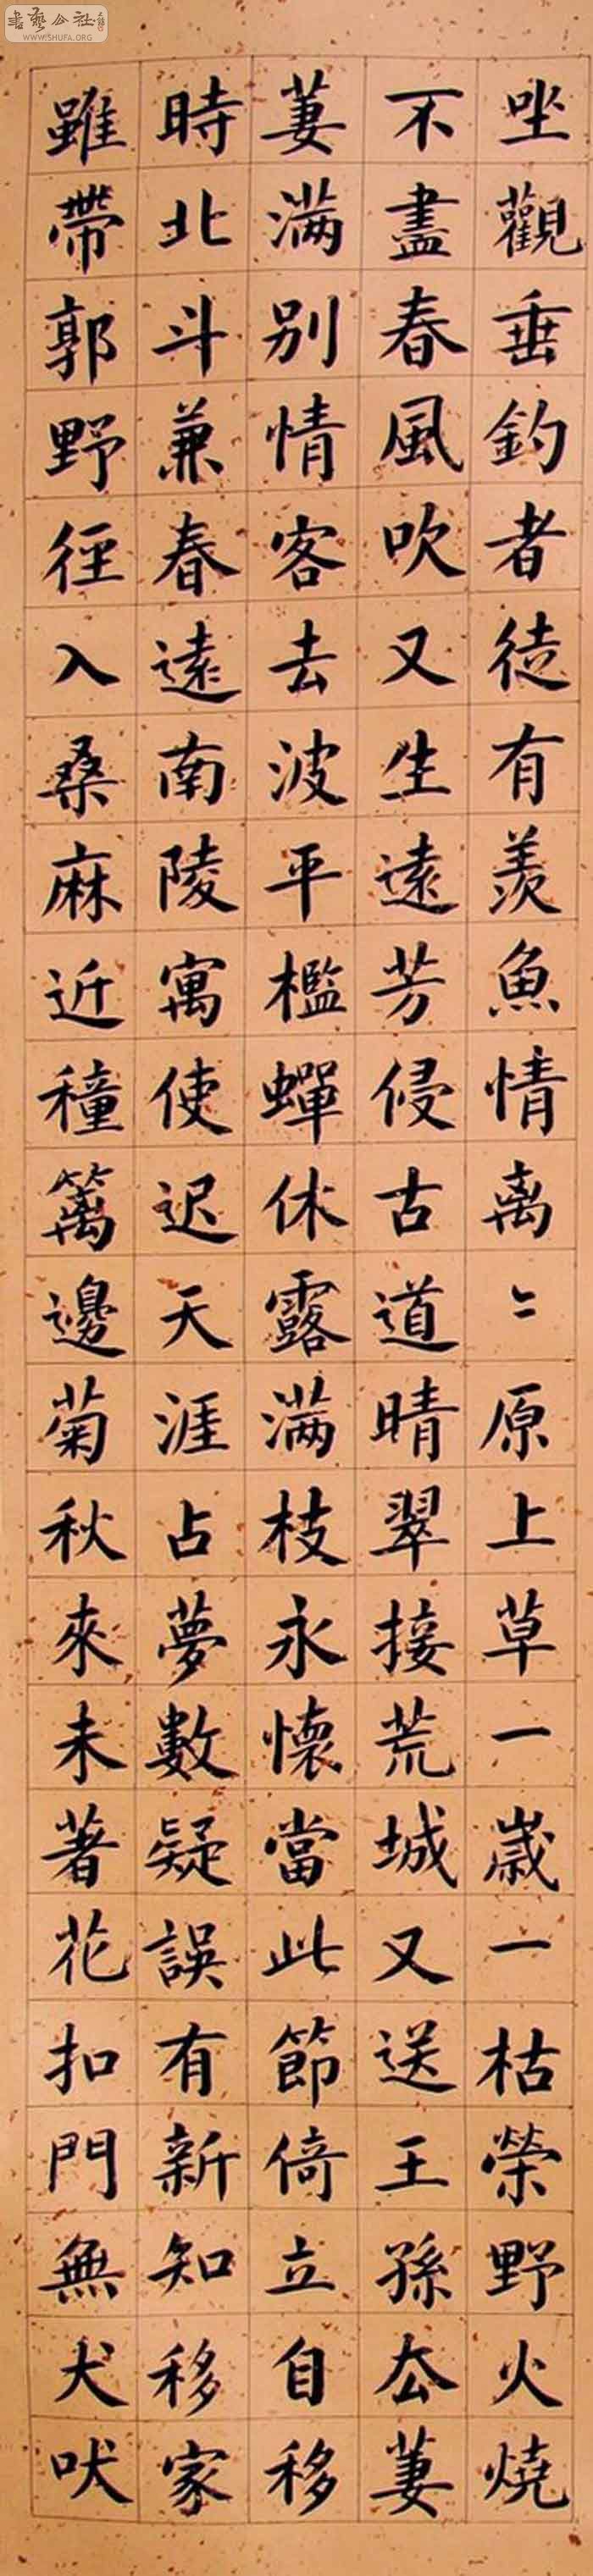 書藝公社
WWW.SHUFA.ORG
坐觀垂釣者徒有羨魚情离〻原上草一歲一枯榮野火燒
不盡春風吹又生遠芳侵古道晴翠接荒城又送王孫厺萋
萋满别情客去波平檻蟬休露满枝永懷當此節倚立自移
時北斗兼春遠南陵寓使迟天涯占夢數疑誤有新知移家
雖帶郭野徑入桑麻近穜籬邊菊秋來未著花扣門無犬吠